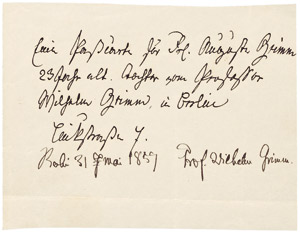 Eine Paßkarte für Frl. Auguste Grimm
23 Jahr alt. Tochter vom Professor
Wilhelm Grimm, in Berlin
Linkstraße 7.
Berlin 31 Mai 1857 Prof. Wilhelm Grimm.